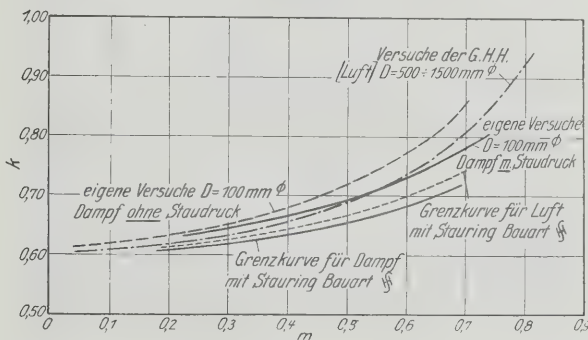 1,00
0,90
0,80
0,70
0,60
0,50
k
Versuche der G.H.H.
(Luft) D=500÷1500mm ϕ
eigene Versuche
D=100mm ϕ
Dampf m. Staudruck
eigene Versuche D=100mm ϕ
Dampf ohne Staudruck
Grenzkurve für Luft
mit Stauring Bauart
Grenzkurve für Dampf
mit Stauring Bauart
0 0,1 0,2 0,3 0,4 0,5 0,6 0,7 0,8 0,9
m